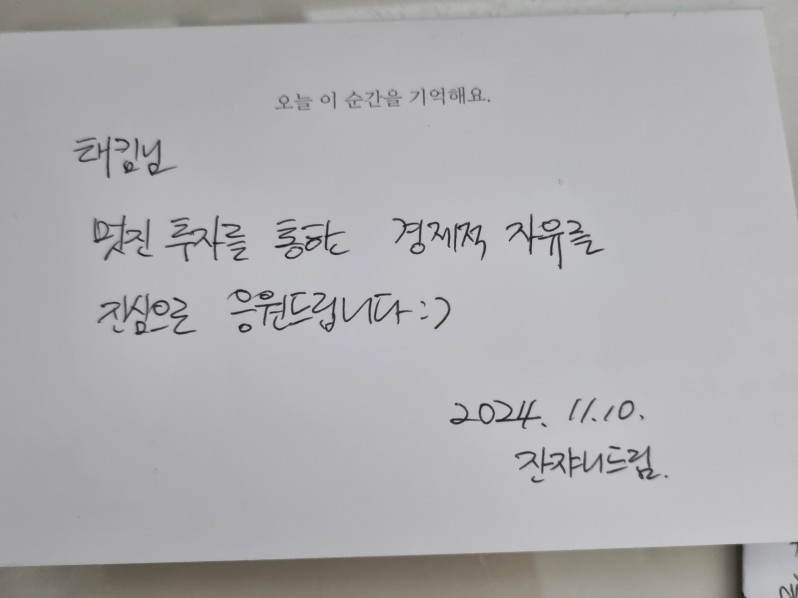 오늘 이 순간을 기억해요.
태킴님
멋진 투자를 통한 경제적 자유를
진심으로 응원드립니다 :)
2024. 11.10.
잔쟈니드림.